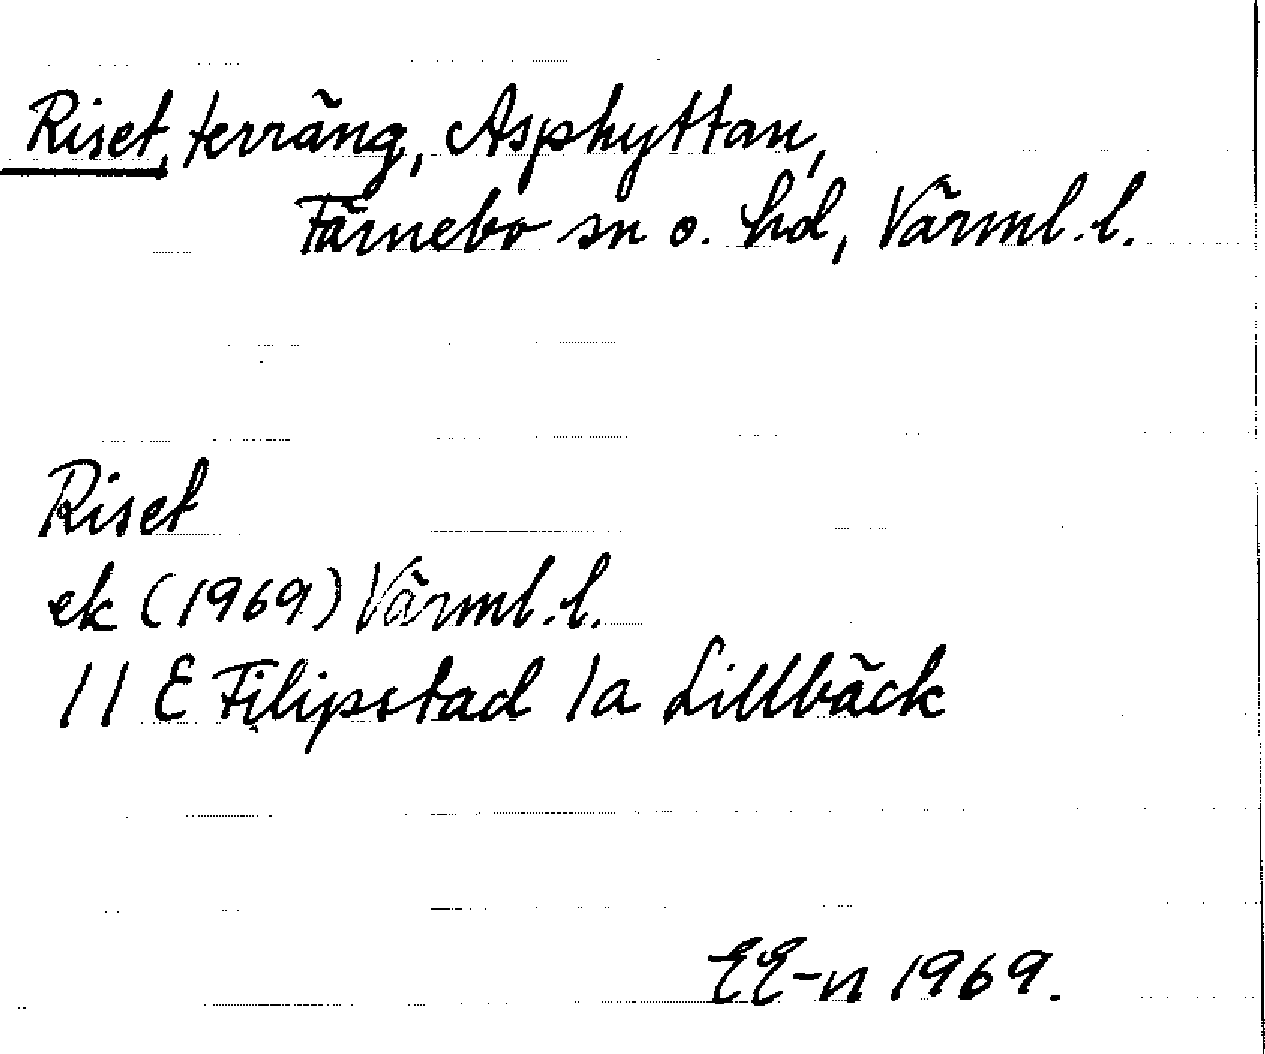 Riset, terräng, Asphyttan,
Färnebo sn o. hd, Värml. l.
Riset
ek (1969) Värml. l.
11 E Filipstad 1a Lillbäck
EE-n 1969.